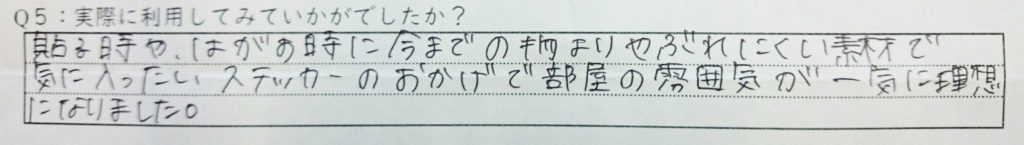 Q5：実際に利用してみていかがでしたか？
貼る時や、はがす時に今までの物よりやぶれにくい素材で
気に入ったしステッカーのおかげで部屋の雰囲気が一気に理想
になりました。